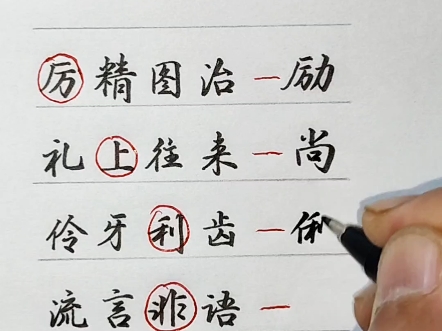 厉精图治一励
礼上往来一尚
伶牙利齿一俐
流言非语一